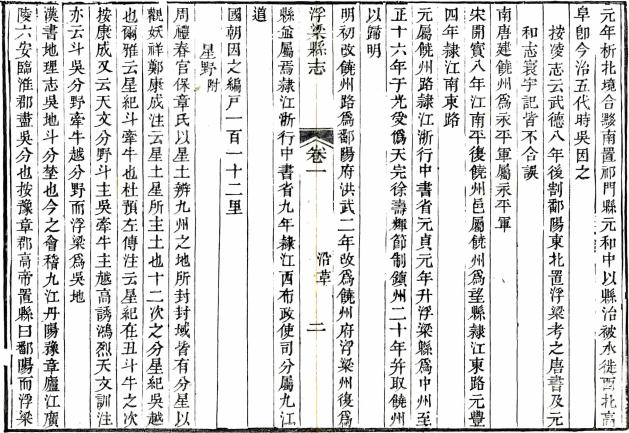 元年析北境合黟南置祁門縣元和中以縣治被水徙西北高
阜卽今治五代時吳因之
按凌志云武德八年後割鄱陽東北置浮梁考之唐書及元
和志寰宇記皆不合誤
南唐建饒州爲永平軍屬永平軍
宋開寶八年江南平復饒州邑屬饒州爲望縣隸江東路元豐
四年隸江南東路
元屬饒州路隸江浙行中書省元貞元年升浮梁縣爲中州至
正十六年于光受僞天完徐壽輝節制鎮州二十年并取饒州
以歸明
浮梁縣志
卷一
沿革
二
明初改饒州路爲鄱陽府洪武二年改爲饒州府浮梁州復爲
縣並屬焉隸江浙行中書省九年隸江西布政使司分屬九江
道
國朝因之編戸一百一十二里
星野附
周禮春官保章氏以星土辨九州之地所封封域皆有分星以
觀妖祥鄭康成注云星土星所主土也十二次之分星紀吳越
也爾雅云星紀斗牽牛也杜預左傳注云星紀在丑斗牛之次
按康成又云天文分野斗主吳牽牛主越高誘鴻烈天文訓注
亦云斗吳分野牽牛越分野而浮梁爲吳地
漢書地理志吳地斗分壄也今之會稽九江丹陽豫章廬江廣
陵六安臨淮郡盡吳分也按豫章郡高帝置縣曰鄱陽而浮梁